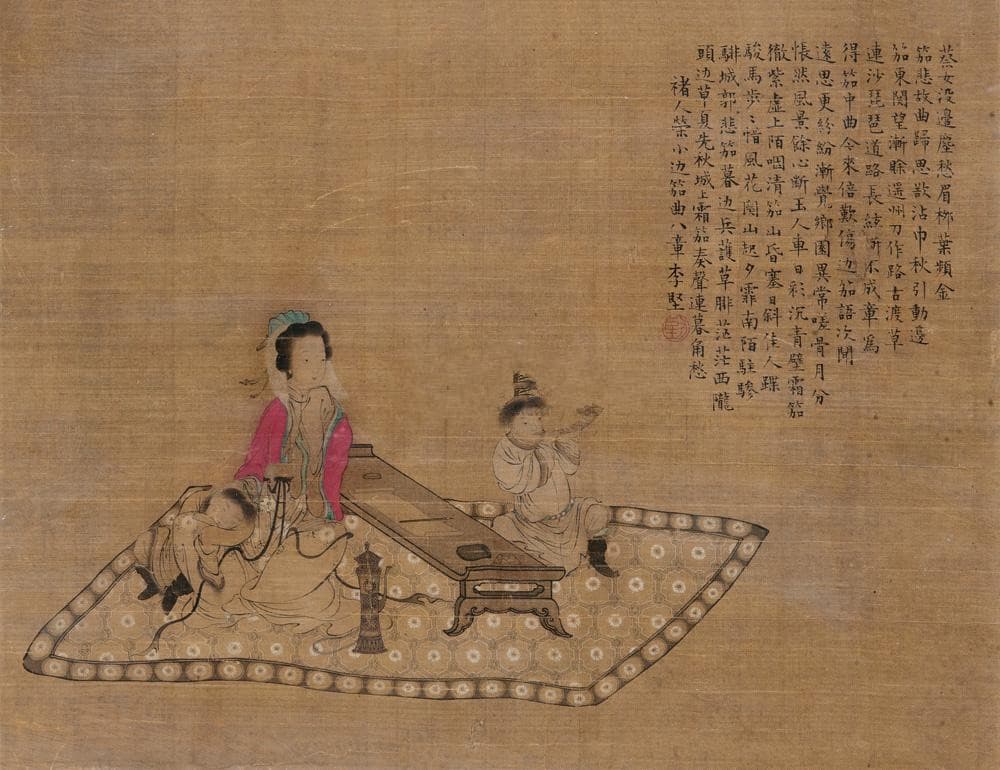 蔡女没邊塵愁眉栁葉頻金
笳悲故曲歸思欲沾巾秋引動邊
笳東関望漸賒還州刀作路古渡草
連沙琵琶道路長絃断不成章為
得笳中曲令來倍歎傷边笳語次聞
遠思更紛紛漸覺鄉園異常嗟骨月分
悵然風景餘心断玉人車日彩沉青壁霜笳
徹紫虚上陌咽清笳山昏塞日斜佳人蹀
駿馬步々惜風花関山起夕霏南陌駐驂
騑城郭悲笳暮边兵護草腓茫茫西隴
頭边草夏先秋城上霜笳奏聲連暮角愁
褚人榮小边笳曲八章李堅